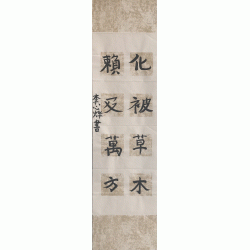 化被草木
賴及萬方
李心烽書